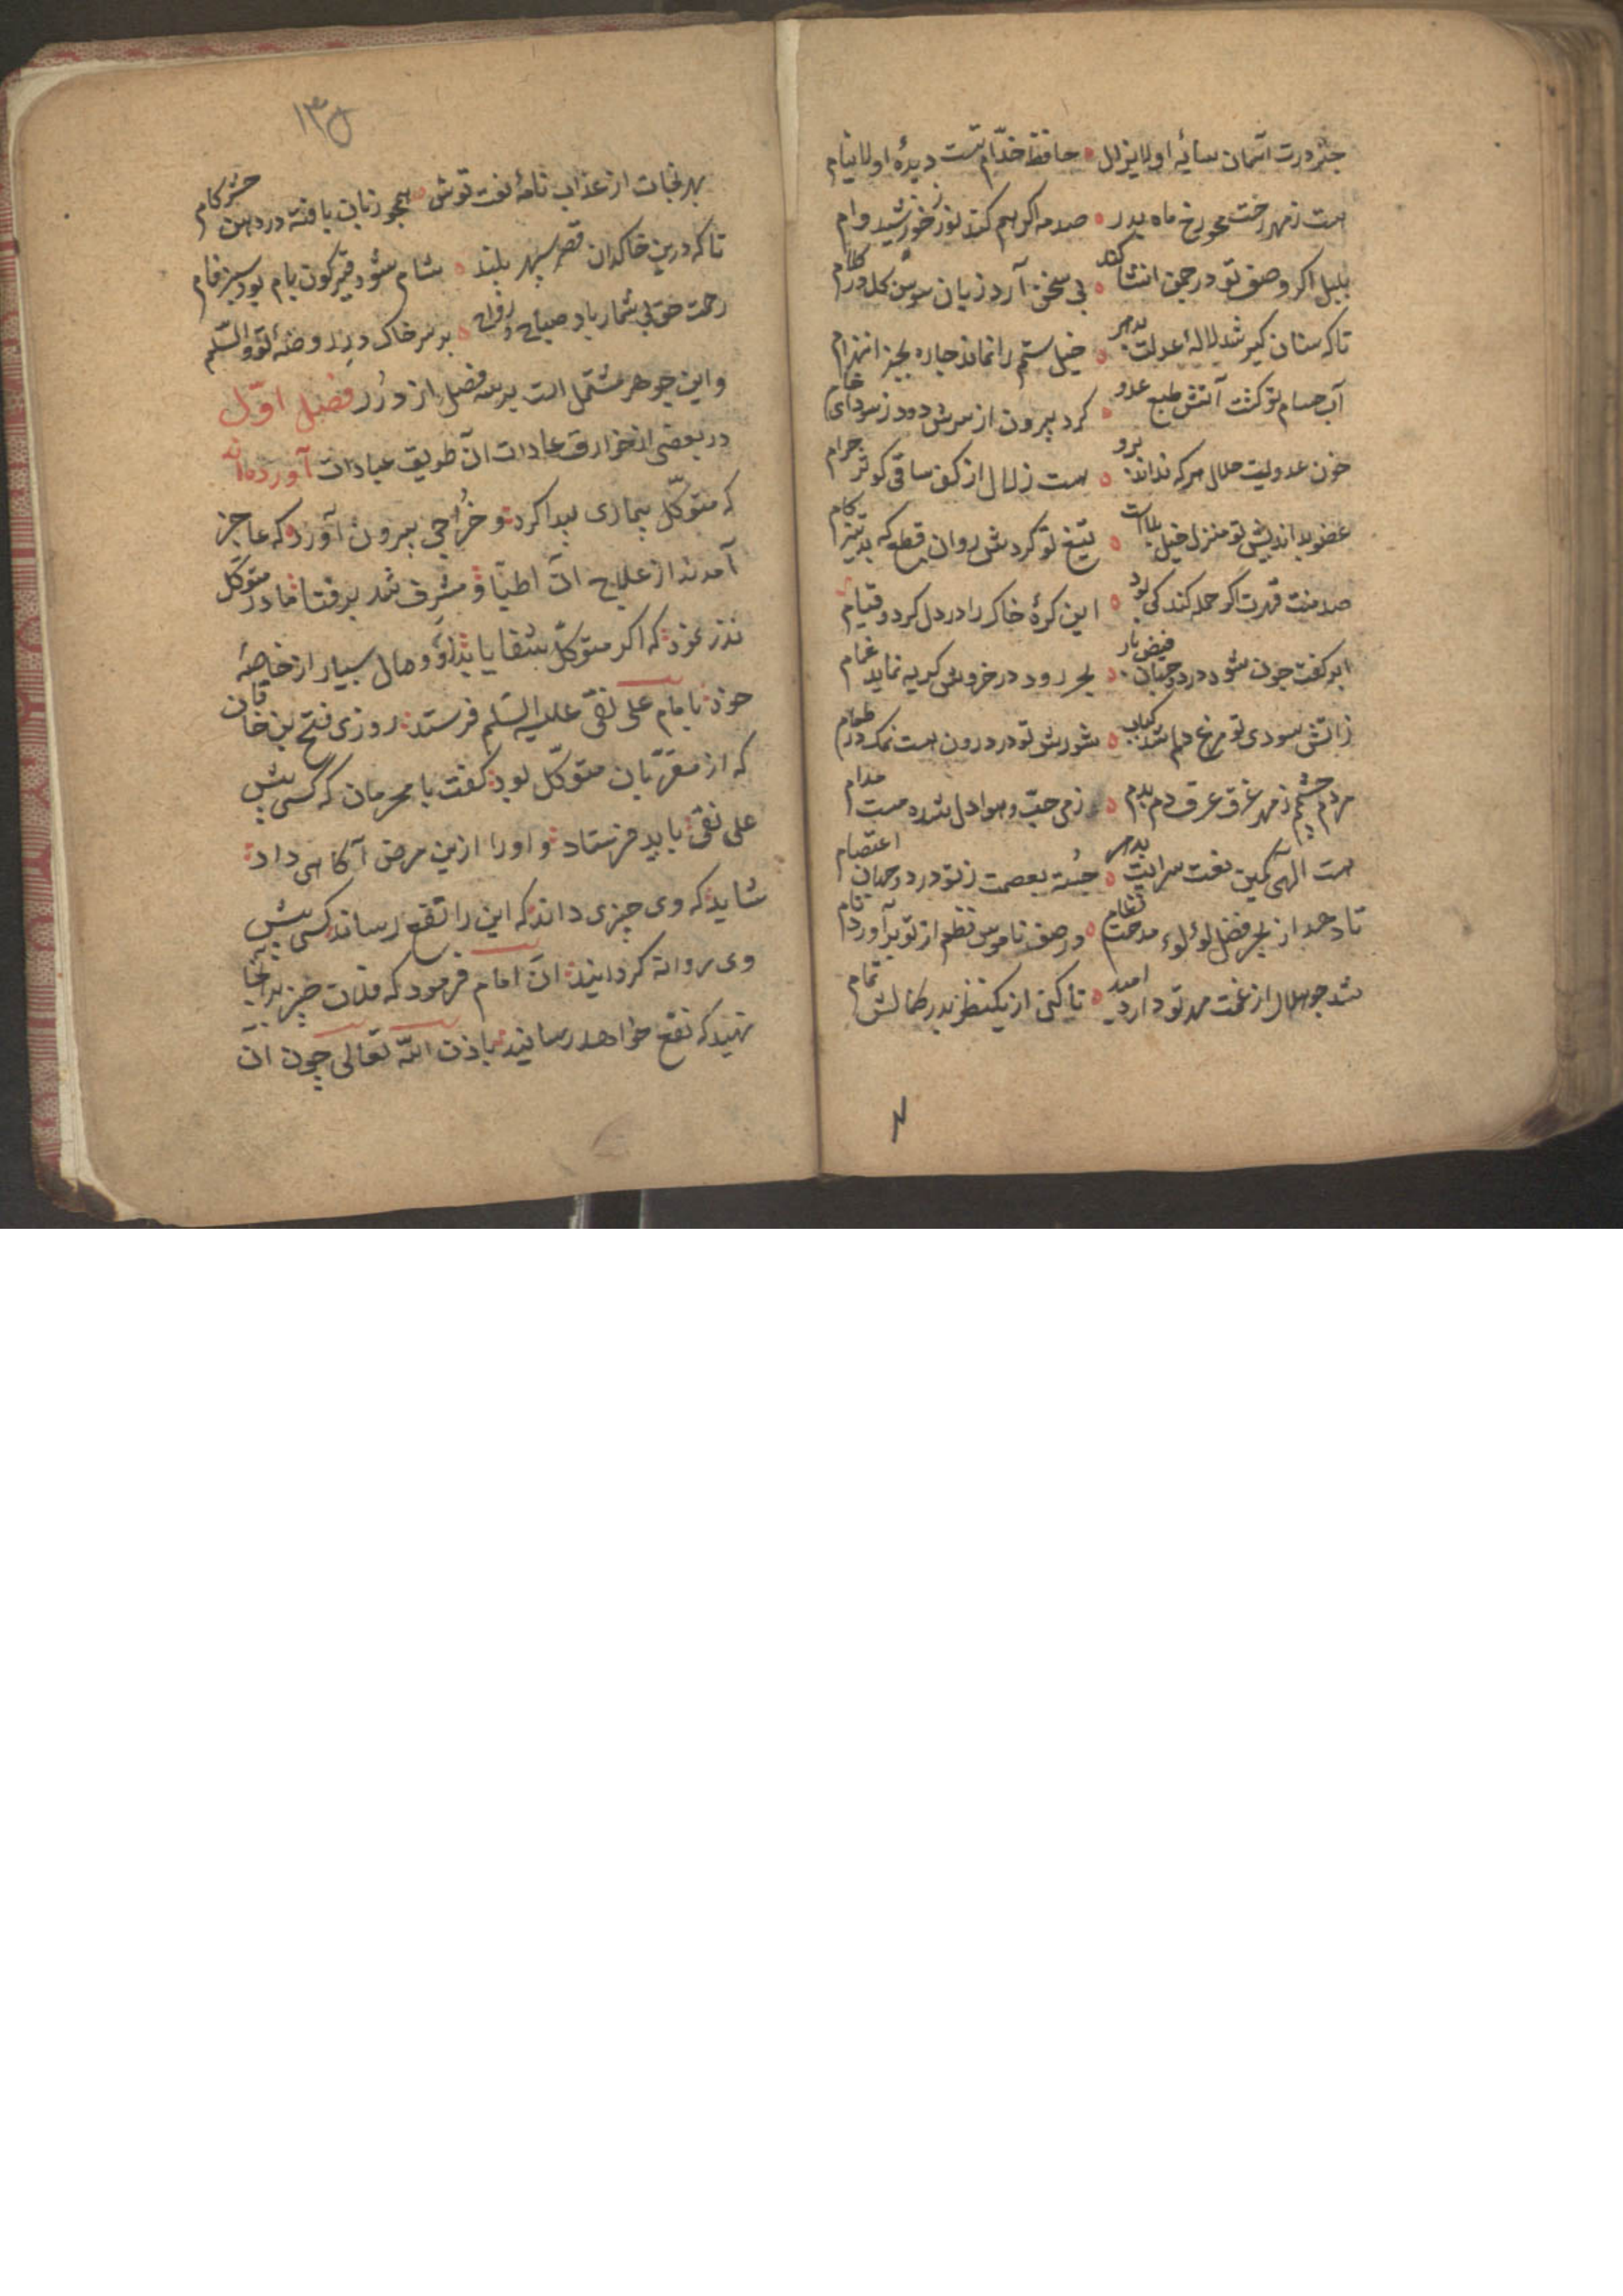 چتر درت آسمان سایهٔ او لایزال حافظ خدّام تست دیدهٔ او لاینام
هست ز مهر رخت محو رخ ماه بدر صدمه اکر هم کند نور ز خورشید وام
بلبل اکر وصف تو در چمن انشا کند بی سخن آرد زبان سوسن کل در کلام
تا که سنان کیر شد لالهٔ عدلت بدهر خیل ستم را نماند چاره بجز انهزام
آب حسام تو کشت آتش طبع عدو کرد برون از سرش دود ز سودای خام
خون عدویت حلال هر که نداند برو هست زلال از کف ساقی کوثر حرام
عضو بداندیش تو منزل خیل بلاست تیغ تو کردش روان قطع که بد تیز کام
صدمت قهرت اکر حمله کند کی بود این کرهٔ خاک را در دل کردو قیام
ابر کفت چون شود در دو جهان فیض بار بحر رود در خروش کریه نماید غمام
ز آتش سودی تو مرغ دلم شد کباب شورش تو در درون هست نمک در طعام
مردم چشمم ز مهر غرق عرق دم بدم ز می حبّ و هوا دل شده مست مدام
هست الهی کمین نعت سرایت بدهر جسته بعصمت ز تو در دو جهان اعتصام
تا دهد از بحر فضل لؤلوء مدحت نظام در صف ناموس نظم از تو برآورد نام
شد چو هلال از غمت مهر تو دارد امید تا کنی از یکنظر بدر کمالش تمام
۱۳۵
بهر نجات از عذاب نامهٔ نعت توش همچو زبان یافته در دهن حشر کام
تا که درین خاکدان قصر سپهر بلند بشام شود قیرکون بام بود سبز فام
رحمت حق بی شمار باد صباح و رواح بر سر خاک در روضهٔ تو والسّلم
و این جوهر مشتمل است بر سه فصل از درر فصل اوّل
در بعضی از خوارق عادات آن طریق عبادات آورده‌اند
که متوکّل بیماری پیدا کرد و خُراجی بیرون آورد که عاجز
آمدند از علاج آن اطبّا و مشرف شد بر فنا مادر متوکّل
نذر نمود که اکر متوکّل شفا یابد او مال بسیار از خاصّهٔ
خود بامام علی نقی علیه السّلم فرستد روزی فتح بن خاقان
که از مقرّبان متوکّل بود کفت با محرمان که کسی پیش
علی نقی باید فرستاد و او را ازین مرض آکاهی داد
شاید که وی چیزی داند که این را نفع رساند کسی پیش
وی روانه کردانیدند آن امام فرمود که فلان چیز بر آنجا
نهید که نفع خواهد رسانید باذن الله تعالی چون آن